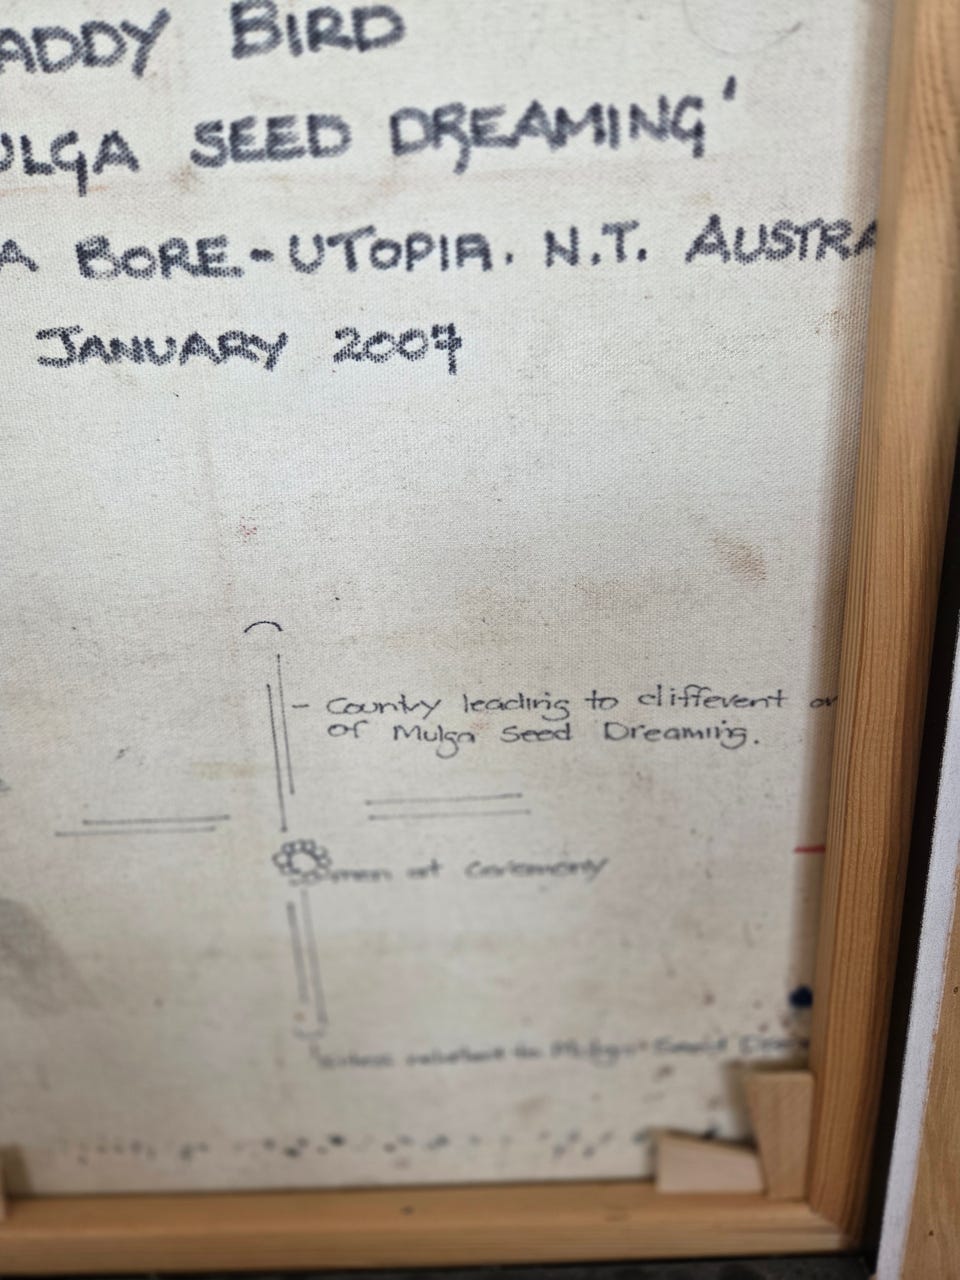 ADDY BIRD
ULGA SEED DREAMING'
A BORE - UTOPIA. N.T. AUSTRA
JANUARY 2007
- Country leading to different
of Mulga Seed Dreaming.
men at Ceremony